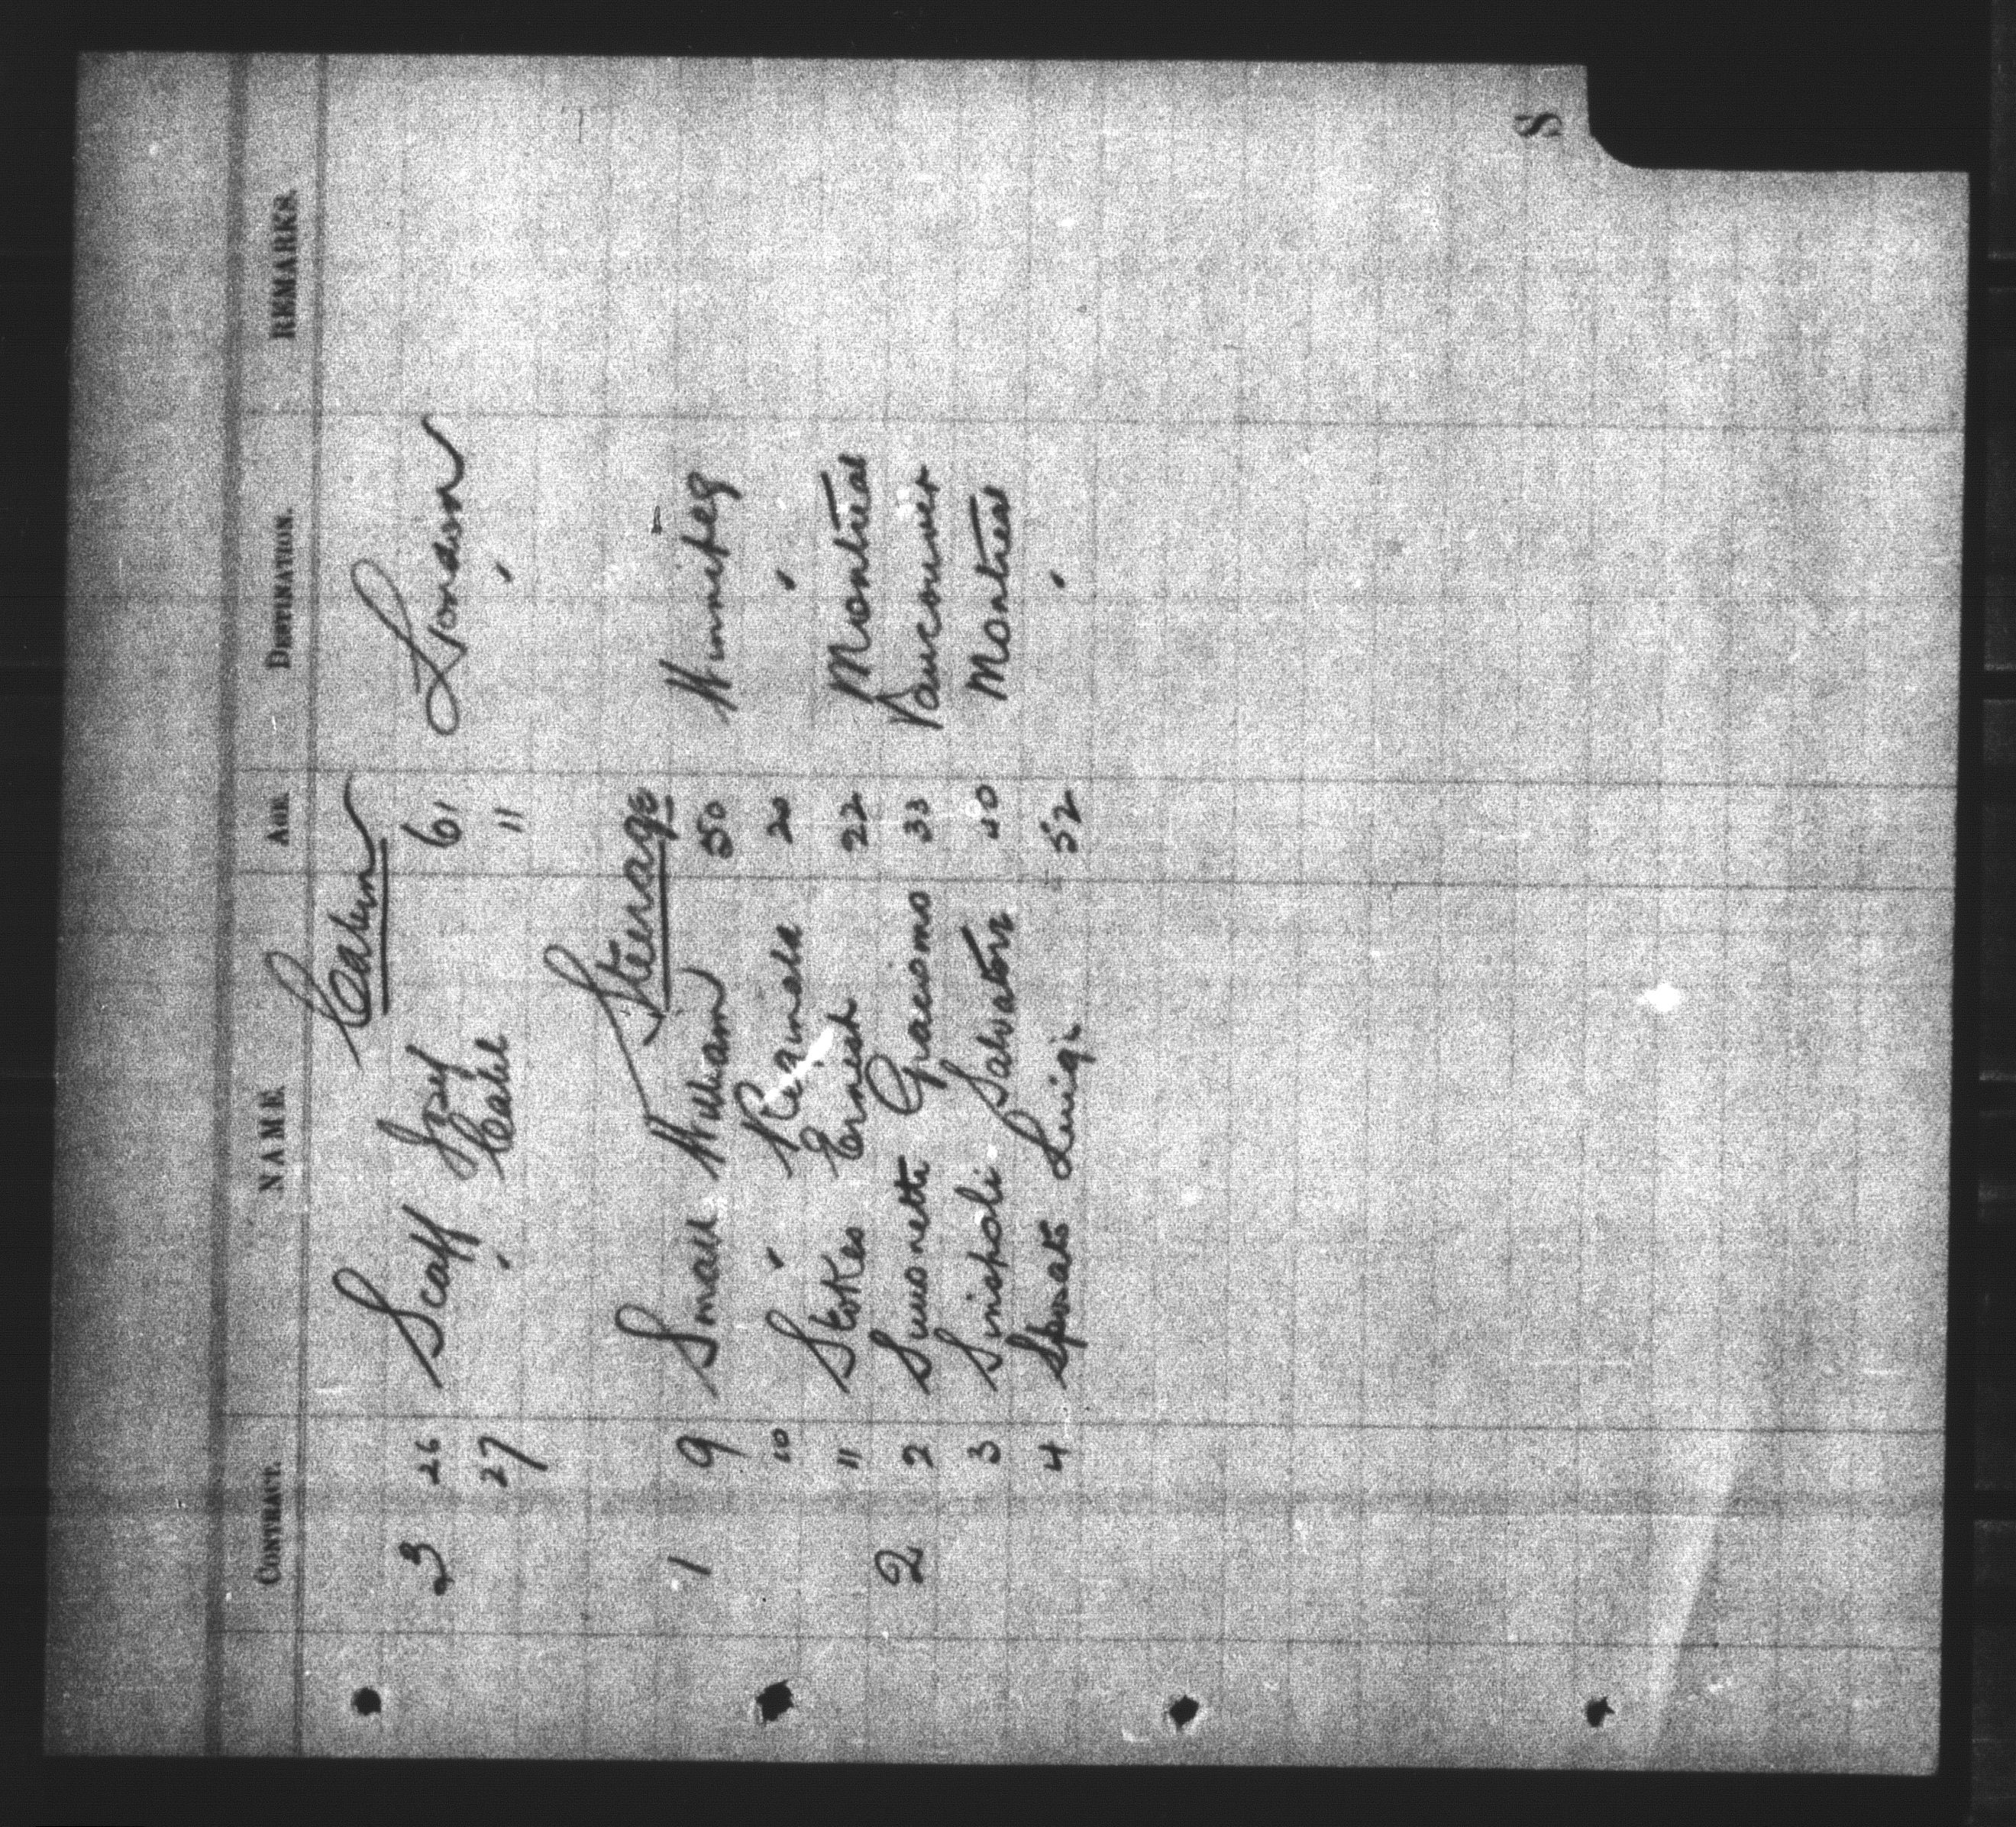 S
CONTRACT. NAME. AGE. DESTINATION. REMARKS.
Cabin
3 26 Scaff Jozef 61 London
27 " 11 "
Steerage
1 9 Small William 50 Winnipeg
10 " Reginald 20 "
11 Stokes Ernest 22 Montreal
2 2 Giacomo 33 Vancouver
3 Sinipoli Salvatore 40 Montreal
4 Sposato Luigi 52 "